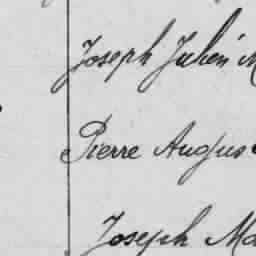 Joseph Julien M
Pierre Augus
Joseph Ma